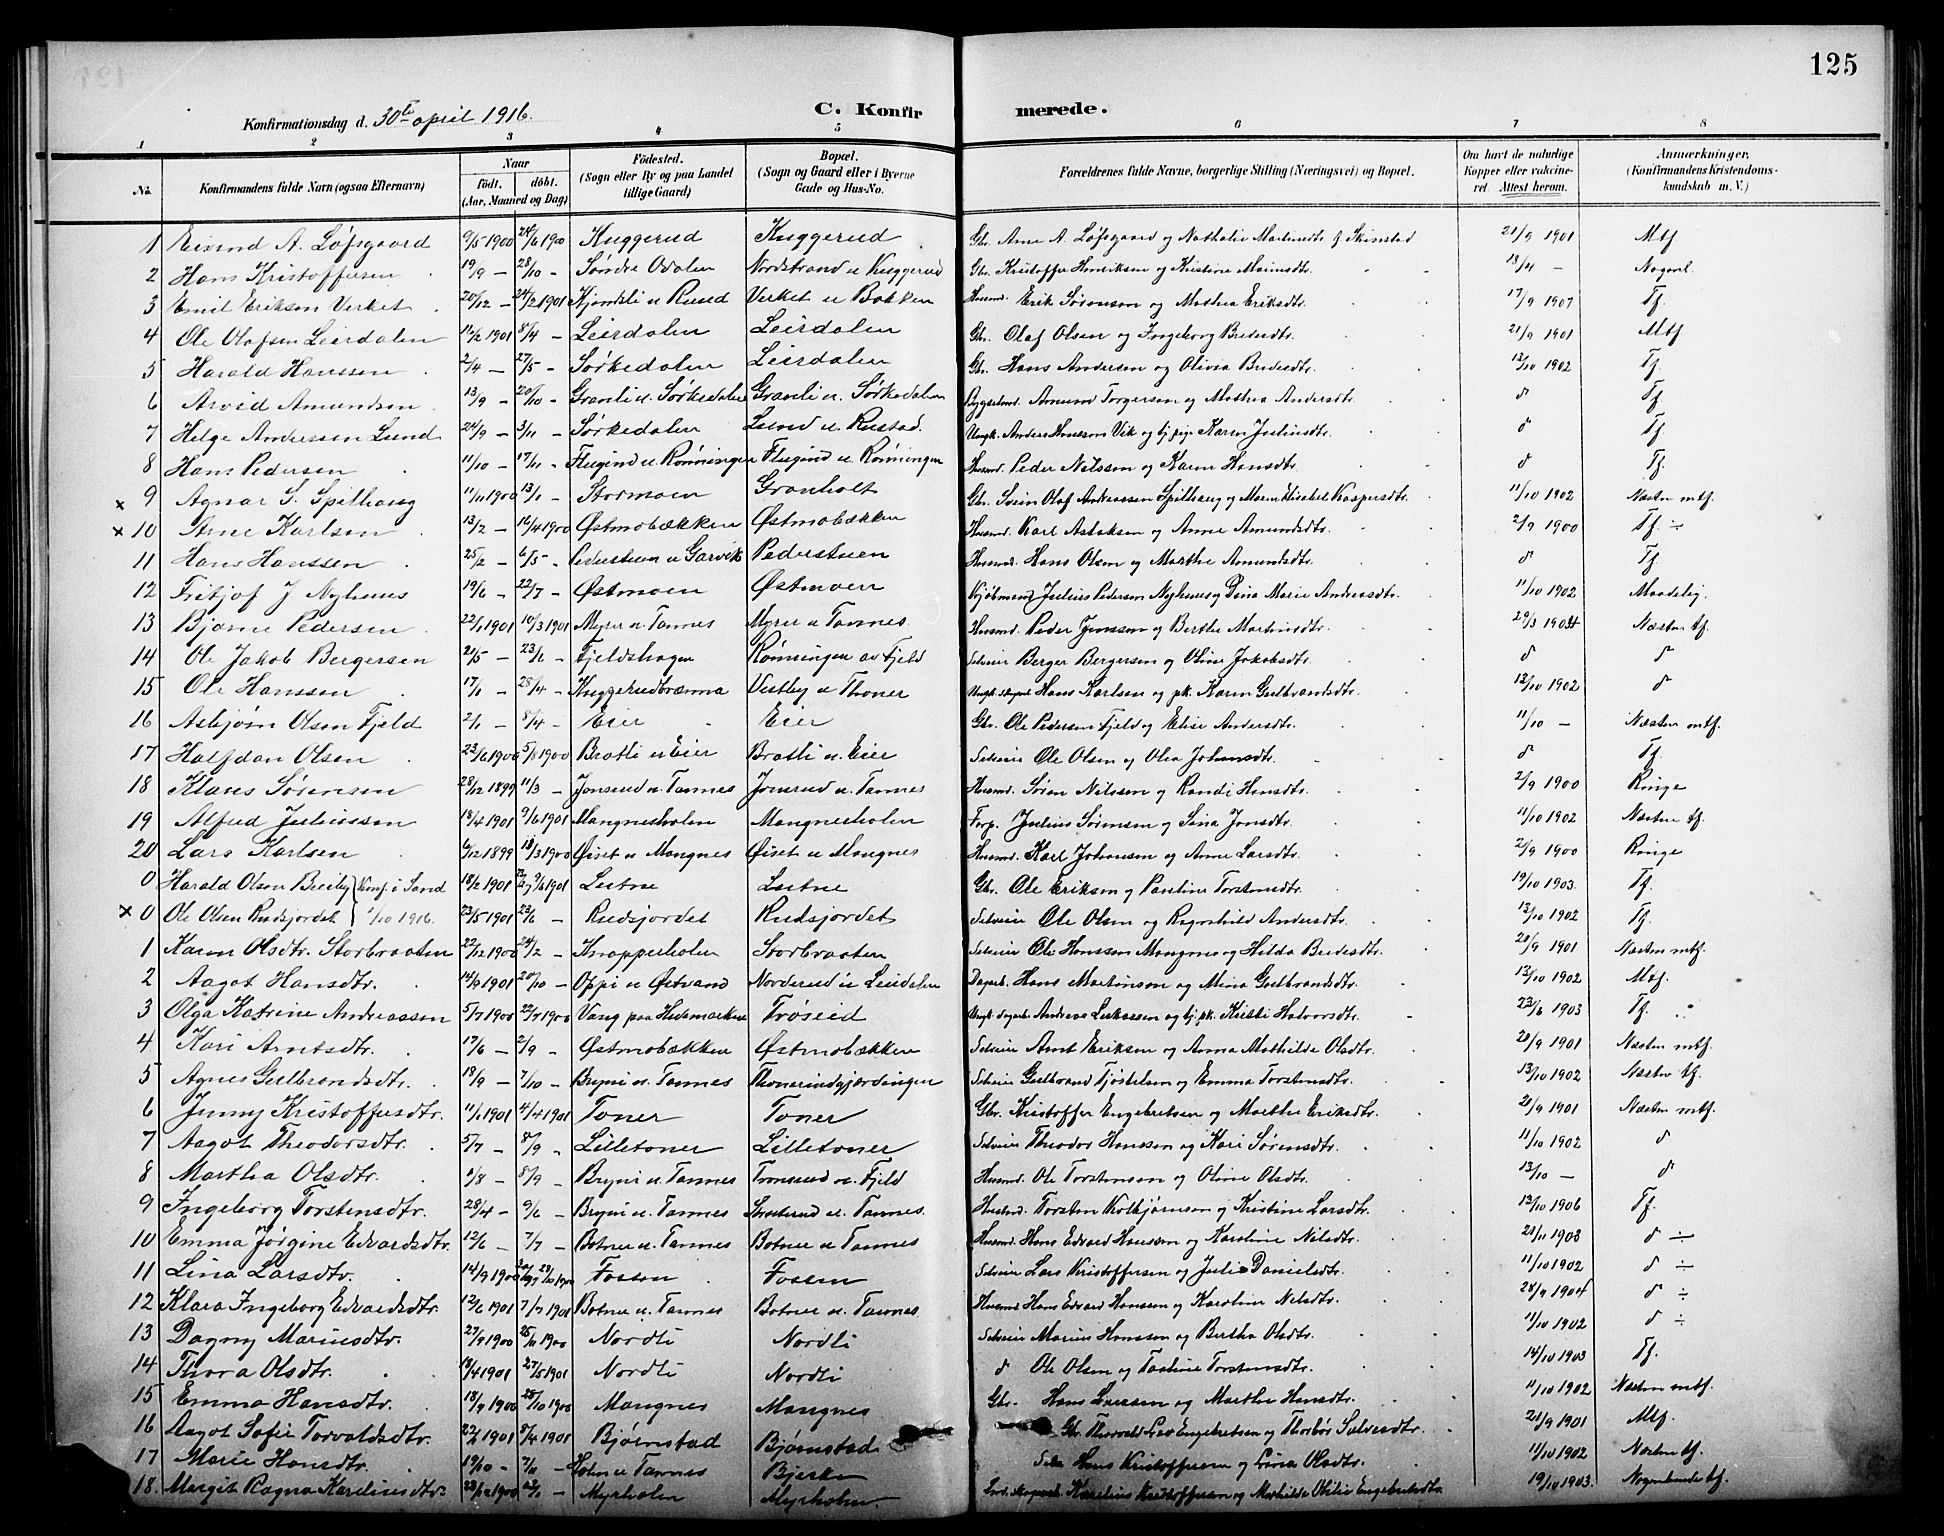 125
Konfirmationsdag d. 30te april 1916. C. Konfirmerede.
1 2 3 4 5 6 7 8
No. Konfirmandens fulde Navn (ogsaa Efternavn) Naar födt. döbt. (Aar, Maaned og Dag) Födested. (Sogn eller By og paa Landet tillige Gaard) Bopæl. (Sogn og Gaard eller i Byerne Gade og Hus-No. Forældrenes fulde Navne, borgerlige Stilling (Næringsvei) og Bopæl. Om havt de naturlige Kopper eller vakcineret. Attest herom. Anmærkninger, (Konfirmandens Kristendomskundskab m. V.)
1 Eivind A. Løfsgaard 9/5 1900 24/6 1900 Kuggerud Kuggerud Gbr. Arne A. Løfsgaard og Nathalie Martinsdtr f Skinstad 21/9 1901 Mtf
2 Hans Kristoffersen 19/9 - 28/10 - Søndre Odalen Nordstrand u Kuggerud Gbr. Kristoffer Henriksen og Kristine Mariusdtr. 18/4 - Nogenl.
3 Emil Eriksen Verket 20/12 - 24/2 1901 Kjøndsli u Rused Verket u Bakken Husmd. Erik Sørensen og Mathea Eriksdtr. 17/9 1907 Tf.
4 Ole Olafsen Leirdalen 12/2 1901 8/4 - Leirdalen Leirdalen Gbr. Olaf Olsen og Ingeborg Bredesdtr. 21/9 1901 Mtf
5 Harald Hanssen 2/4 - 27/5 - Sørkedalen Leirdalen Gbr. Hans Andersen og Olivia Bredesdtr. 13/10 1902 Tf.
6 Arvid Amundsen 13/9 - 20/10 - Granli u. Sørkedalen Granli u. Sørkedalen Bygselmd. Amund Torgersen og Mathea Andersdtr. d Tf.
7 Helge Anderssen Lund 24/9 - 3/11 - Sørkedalen Lund u. Rustad. Ungk. Anders Hanssen Vik og tj.pige Karen Juliusdtr. d Tf
8 Hans Pedersen 11/10 - 17/11 - Flugind u Rønningen Flugind u Rønningen Husmd. Peder Nilssen og Karen Hansdtr. d Tf.
x 9 Agnar S. Spilhaug 11/11 1900 13/1 - Stormoen Granholt Gbr. Svein Olaf Andreassen Spilhaug og Maren Elisabet Kaspersdtr. 11/10 1902 Næsten mtf.
x 10 Arne Karlsen 13/2 - 16/4 1900 Østmobækken Østmobækken Husmd. Karl Aslaksen og Anne Amundsdtr. 2/9 1900 Tf. ÷
11 Hans Hanssen 25/2 - 6/5 - Pederstuen u Garvik Pederstuen Husmd. Hans Olsen og Marthe Amundsdtr. d Tf.
12 Fritjof J Nyhuus 19/6 - 22/7 - Østmoen Østmoen Kjøbmand Julius Pedersen Nyhuus og Dina Marie Andreasdtr. 11/10 1902 Maadelig.
13 Bjarne Pedersen 22/1 1901 10/3 1901 Myrer u. Tannes Myrer u Tannes. Husmd. Peder Jenssen og Berthe Martinsdtr. Næsten tf.
14 Ole Jakob Bergersen 21/5 - 23/6 - Fjeldshagen Rønningen av Fjeld Selveier Berger Bergersen og Oline Jakobsdtr. d d
15 Ole Hanssen 17/1 - 28/4 - Kuggerudbrænna Vestby u Thoner Hans Karlsen og pk. Karen Gulbrandsdtr. 12/10 1902 d
16 Asbjørn Olsen Fjeld 2/1 - 8/4 - Eier Eier Gbr. Ole Pedersen Fjeld og Elise Andersdtr. 11/10 - Næsten mtf.
17 Halfdan Olsen 23/6 1900 5/8 1900 Bratli u Eier Bratli u. Eier Selveier Ole Olsen og Olea Johansdtr. d Tf.
18 Klaus Sørensen 28/12 1899 11/3 - Jonsrud u. Tannes Jonsrud u. Tannes Husmd. Søren Nilssen og Randi Hansdtr. 2/9 1900 Ringe
19 Alfred Juliussen 18/4 1901 9/6 1901 Mangnesholen Mangnesholen Forp. Julius Sørensen og Lina Jonsdtr. 11/10 1902 Næsten tf.
20 Lars Karlsen 6/12 1899 18/3 1900 Øiset u Mangnes Øiset u Mangnes Husmd. Karl Johansen og Anne Larsdtr. 2/9 1900 Ringe
0 Harald Olsen Breiby { Konf. i Sand 18/2 1901 9/6 1901 Lutne Lutne Gbr. Ole Eriksen og Pauline Torstensdtr. 19/10 1903. Tf.
x 0 Ole Olsen Rudsjordet } 1/10 1916. 23/5 1901 23/6 - Rudsjordet Rudsjordet Selveier Ole Olsen og Ragnhild Andersdtr. 13/10 1902 Tf.
1 Karen Olsdtr. Storbraaten 22/12 1900 24/2 - Knapperholen Storbraaten Selveier Ole Hanssen Mangnes og Hilda Bredesdtr. 20/9 1901 Næsten mtf.
2 Aagot Hansdtr. 14/9 1901 20/10 - Oppi u Østvand Norderud u Leirdalen Dagarb. Hans Martinsen og Mina Gulbrandsdtr. 13/10 1902 Mtf.
3 Olga Katrine Andreassen 5/7 1900 22/7 1900 Vang paa Hedemarken Trøseid Ungk. Dagarb. Andreas Larssen og tj.pk. Kirsti Halvorsdtr. 23/6 1903 Tf.
4 Kari Arntsdtr. 17/6 - 2/9 - Østmobækken Østmobækken Selveier Arnt Eriksen og Anna Mathilde Olsdtr. 20/9 1901 Næsten mtf.
5 Agnes Gulbrandsdtr. 18/9 - 7/10 - Bryni u. Tannes Thonerindgjærdingen Selveier Gulbrand Tjøstelsen og Emma Torstensdtr. 13/10 1902 Næsten tf.
6 Jenny Kristoffersdtr. 11/1 1901 4/4 1901 Toner Toner Gbr. Kristoffer Engebretsen og Marthe Eriksdtr. 21/9 1901 Næsten mtf.
7 Aagot Theodorsdtr. 5/7 - 8/9 - Lilletoner Lilletoner Selveier Theodor Hanssen og Kari Sørensdtr. 11/10 1902 d
8 Martha Olsdtr. 1/8 - 8/9 - Bryni u. Tannes Tronsrud u. Fjeld Husmd. Ole Torstensen og Oline Olsdtr. 13/10 - d
9 Ingeborg Torstensdtr. 28/4 - 9/6 - Bryni u. Tannes u. Tannes. Husmd. Torsten Kolbjørnsen og Kristine Larsdtr. 12/10 1906 Tf.
10 Emma Jørgine Edvardsdtr. 12/6 - 7/7 - Botner u. Tannes Botner u Tannes Husmd. Hans Edvard Hanssen og Karoline Nilsdtr. 21/11 1908 d ÷
11 Lina Larsdtr. 14/9 1900 29/10 1900 Fossen Fossen Selveier Lars Kristoffersen og Julie Danielsdtr. 11/10 1902 d ÷
12 Klara Ingeborg Edvardsdtr. 12/6 1901 7/7 1901 Botner u. Tannes Botner u. Tannes Husmd. Hans Edvard Hanssen og Karoline Nilsdtr. 24/9 1904 d ÷
13 Dagny Mariusdtr. 27/9 1900 25/11 1900 Nordli Nordli Selveier Marius Hanssen og Bertha Olsdtr. 11/10 1902 d ÷
14 Thora Olsdtr. 18/4 1901 27/5 1901 Nordli Nordli d Ole Olsen og Pauline Torstensdtr. 14/10 1903 Tf.
15 Emma Hansdtr. 18/9 1900 28/10 1900 Mangnes Mangnes Gbr. Hans Larssen og Marthe Hansdtr. 11/10 1902 Næsten mtf.
16 Aagot Sofie Torvaldsdtr. 22/2 1901 8/4 1901 Bjørnstad Bjørnstad Gbr. Thorvald Engebretsen og Thorbør Sælvesdtr. 21/9 1901 Mtf.
17 Marie Hansdtr. 19/10 - 7/10 - Holen u Tannes Bjerke Hans Kristoffersen og Lina Olsdtr. 11/10 1902 Næsten tf.
18. Margit Ragna Kareliusdtr. 23/12 1900 - Myrholen Myrholen Karelius Kristoffersen og Mathilde Otilie Engebretsdtr. 19/10 1903. Nogenlunde tf.